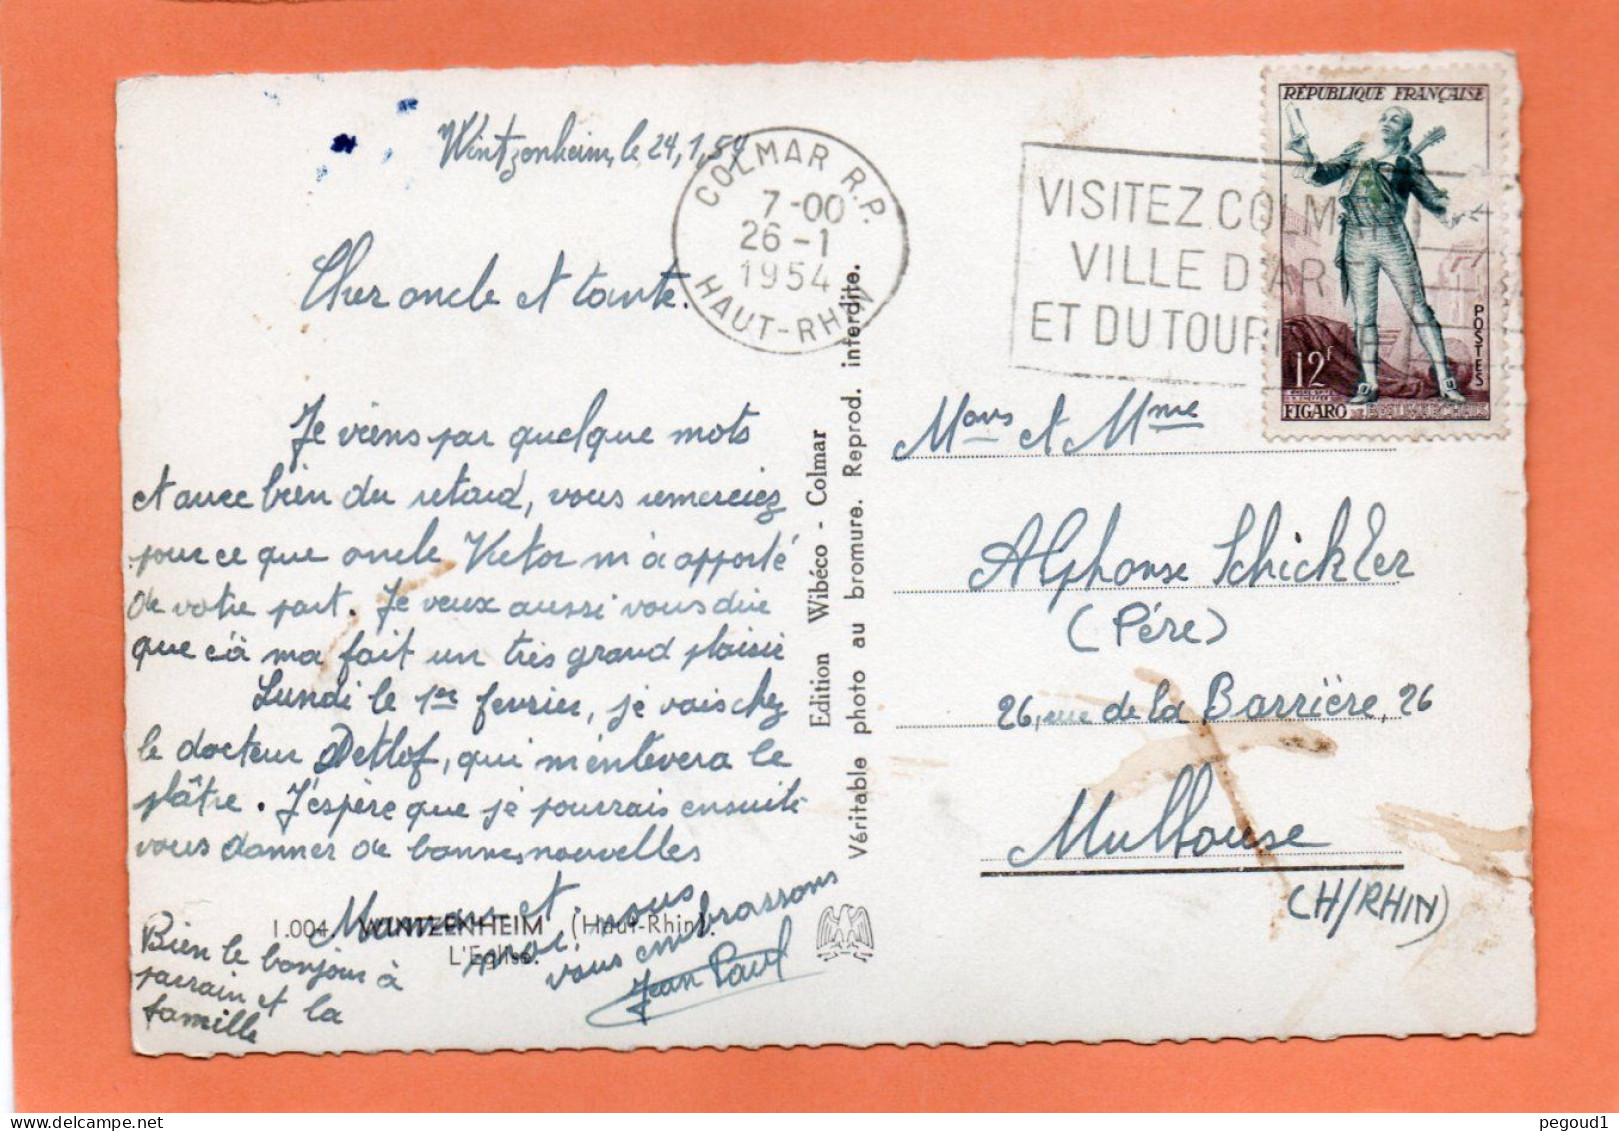 Wintzenheim, le 24,1,54
COLMAR R.P.
7-00
26-1
1954
HAUT-RHIN
VISITEZ COLMAR
VILLE D'ART
ET DU TOURISME
RÉPUBLIQUE FRANÇAISE
POSTES
12F
FIGARO BEAUMARCHAIS
Cher oncle et tante.
Je viens par quelque mots
et avec bien du retard, vous remerciez
pour ce que oncle Victor m'a apporté
de votre part. Je veux aussi vous dire
que c'à ma fait un très grand plaisir
Lundi le 1er fevrier, je vais chez
le docteur Detlof, qui m'enlevera le
plâtre. J'espère que je pourrais ensuite
vous donner de bonnes nouvelles
Maman et moi nous
vous embrassons
Jean Paul
Bien le bonjour à
parrain et la
famille
1.004. WINTZENHEIM (Haut-Rhin).
L'Eglise.
Edition Wibéco - Colmar
Véritable photo au bromure. Reprod. interdite.
Mons et Mme
Alphonse Schickler
(Pére)
26, rue de la Barrière, 26
Mulhouse
(H/RHIN)
pegoud1